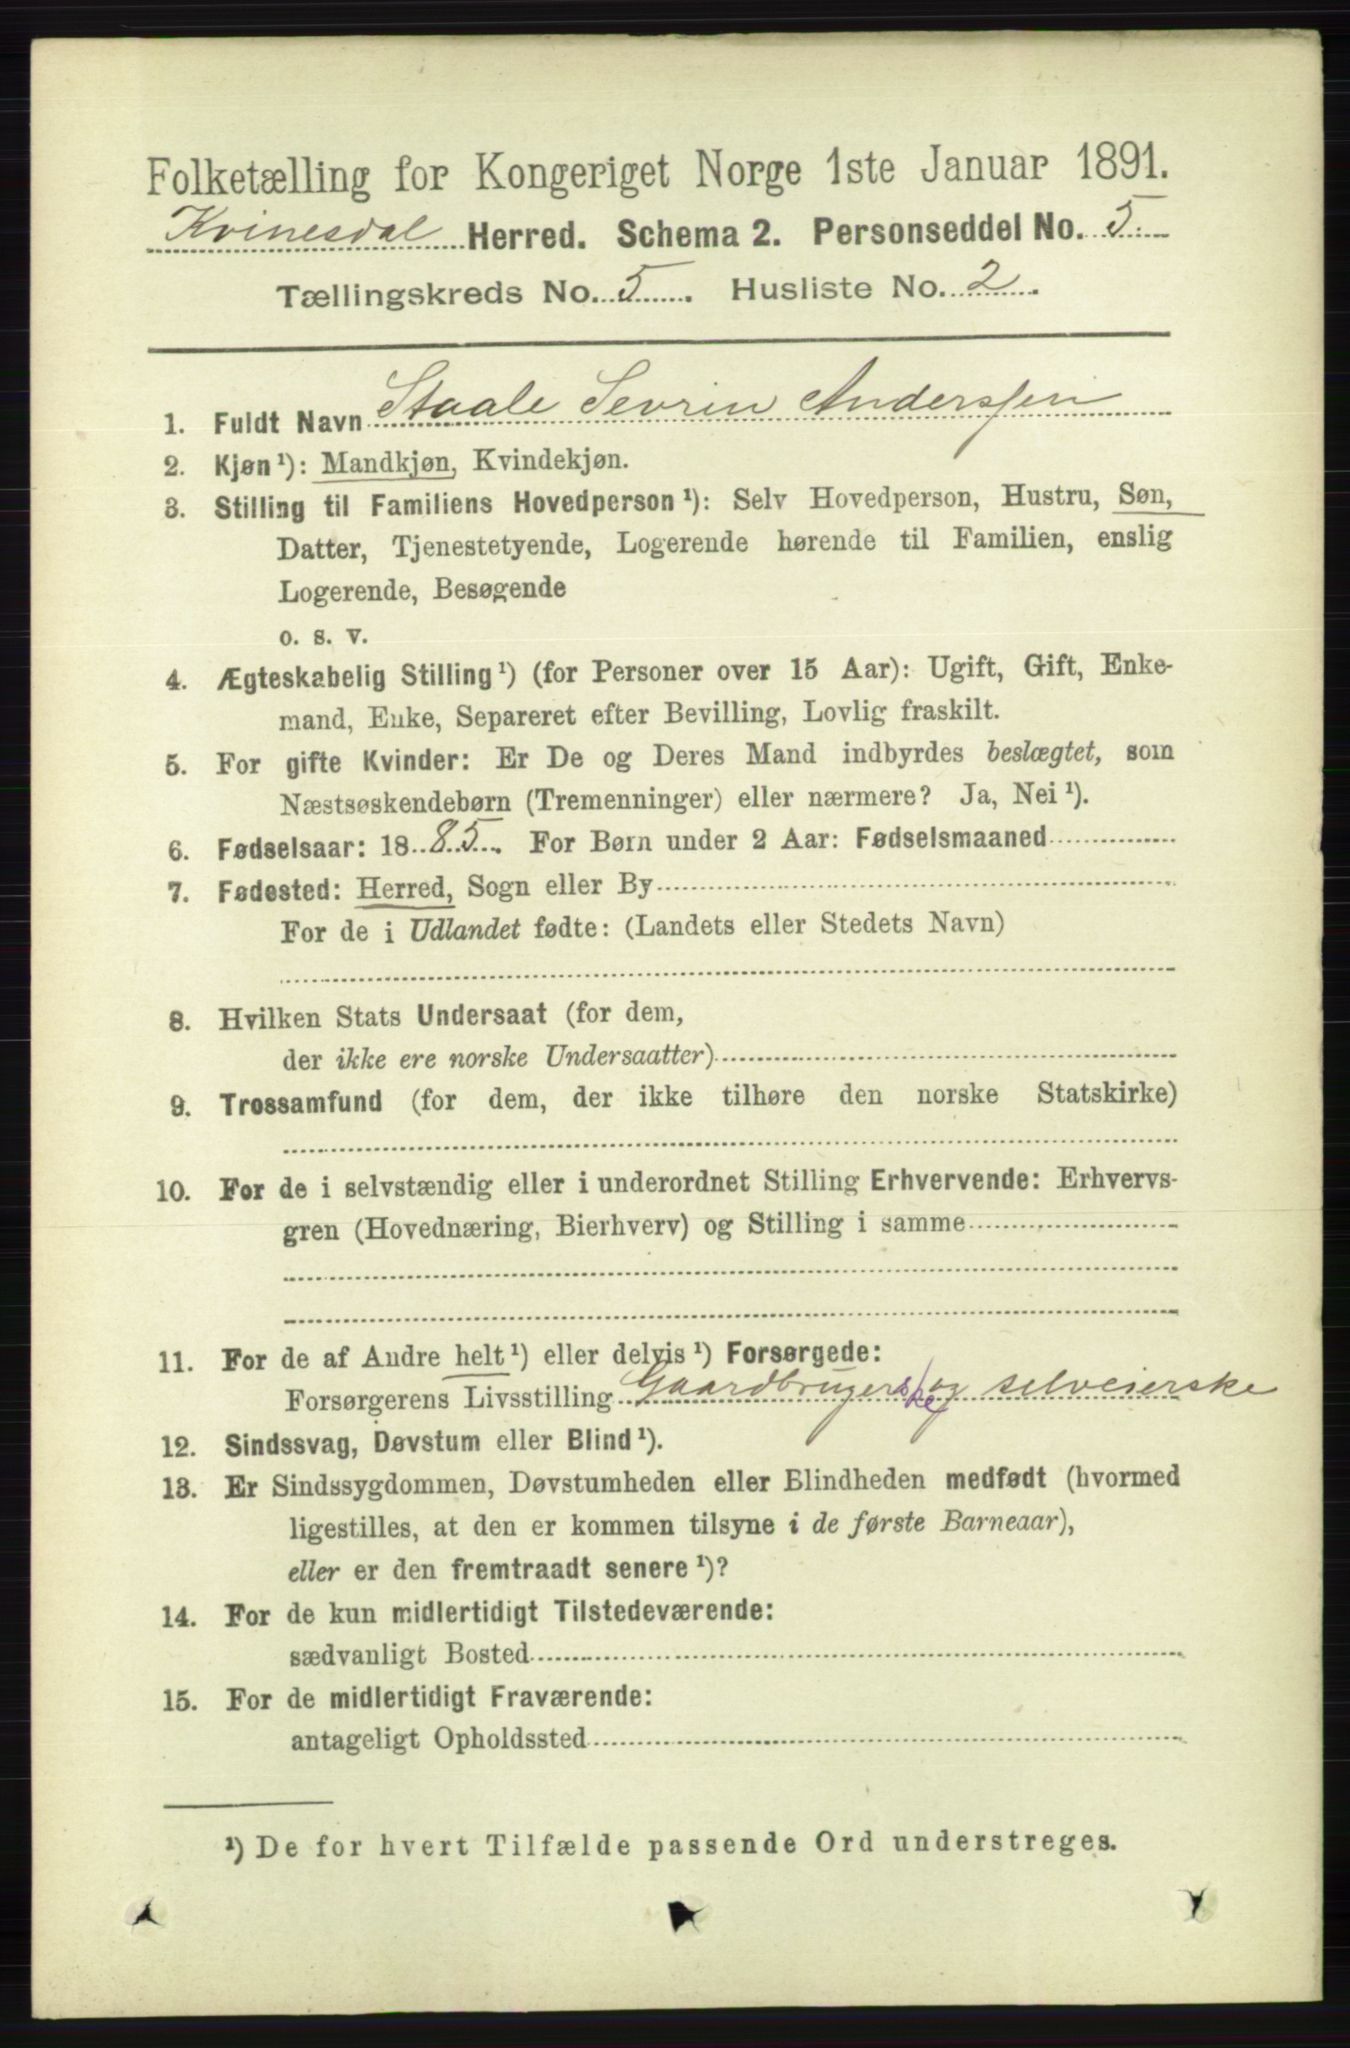 Folketælling for Kongeriget Norge 1ste Januar 1891.
Kvinesdal Herred. Schema 2. Personseddel No. 5.
Tællingskreds No. 5. Husliste No. 2.
1. Fuldt Navn Staale Sevrin Anderssen
2. Kjøn¹): Mandkjøn, Kvindekjøn.
3. Stilling til Familiens Hovedperson¹): Selv Hovedperson, Hustru, Søn,
Datter, Tjenestetyende, Logerende hørende til Familien, enslig
Logerende, Besøgende
o. s. v.
4. Ægteskabelig Stilling¹) (for Personer over 15 Aar): Ugift, Gift, Enke-
mand, Enke, Separeret efter Bevilling, Lovlig fraskilt.
5. For gifte Kvinder: Er De og Deres Mand indbyrdes beslægtet, som
Næstsøskendebørn (Tremenninger) eller nærmere? Ja, Nei¹).
6. Fødselsaar: 1885. For Børn under 2 Aar: Fødselsmaaned
7. Fødested: Herred, Sogn eller By
For de i Udlandet fødte: (Landets eller Stedets Navn)
8. Hvilken Stats Undersaat (for dem,
der ikke ere norske Undersaatter)
9. Trossamfund (for dem, der ikke tilhøre den norske Statskirke)
10. For de i selvstændig eller i underordnet Stilling Erhvervende: Erhvervs-
gren (Hovednæring, Bierhverv) og Stilling i samme
11. For de af Andre helt¹) eller delvis¹) Forsørgede:
Forsørgerens Livsstilling Gaardbrugerske og selveierske
12. Sindssvag, Døvstum eller Blind¹).
13. Er Sindssygdommen, Døvstumheden eller Blindheden medfødt (hvormed
ligestilles, at den er kommen tilsyne i de første Barneaar),
eller er den fremtraadt senere¹)?
14. For de kun midlertidigt Tilstedeværende:
sædvanligt Bosted
15. For de midlertidigt Fraværende:
antageligt Opholdssted
¹) De for hvert Tilfælde passende Ord understreges.